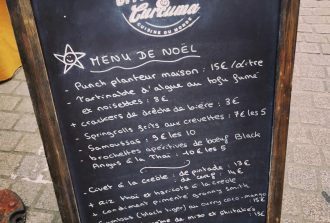 Curcuma
CUISINE DU MONDE
MENU DE NOËL
- Punch planteur maison : 15€/litre
- Tartinable d'algue au tofu fumé
et noisettes : 8€
+ crackers de drêche de bière : 3€
- Springrolls frits aux crevettes : 7€ les 5
- Samoussas : 9€ les 10
- brochettes apéritives de bœuf Black
Angus à la Thaï : 10€ les 5
- Civet à la créole : de pintade : 13€
de cerf : 14€
+ riz thaï et haricots à la créole
+ condiment pimenté granny smith
(black tiger) au curry coco-mango
de miso et shiitakés